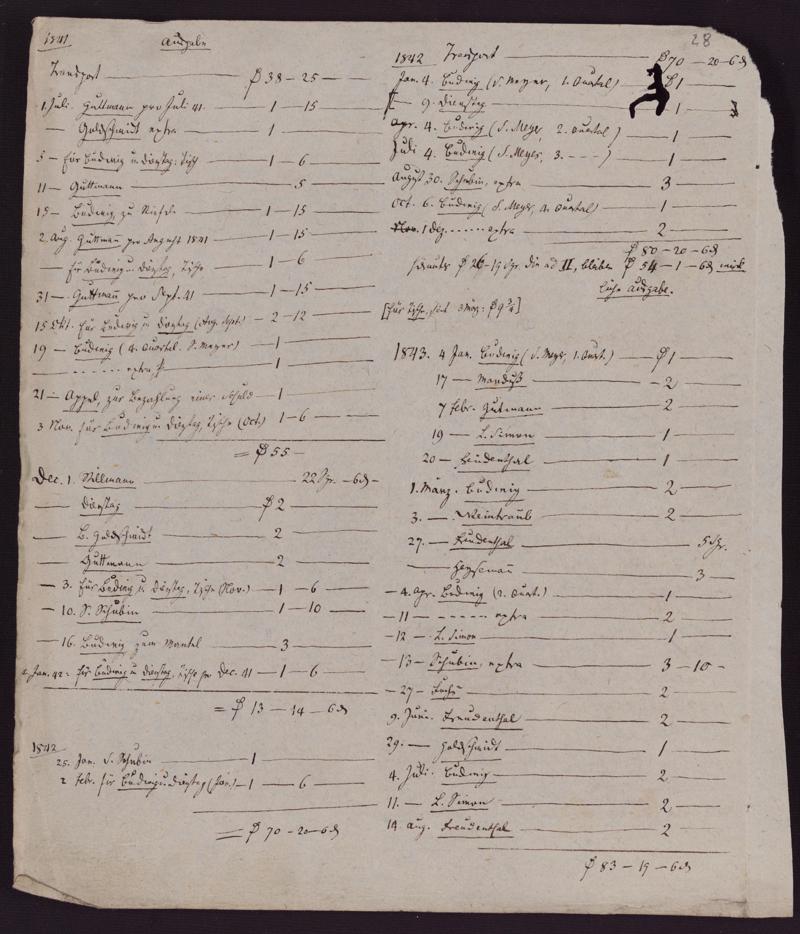 28
1841 Ausgabe
Transport ₰ 38 – 25 –
1. Juli. Guttmann pro Juli 41. – 1 – 15
– Goldschmidt extra – 1 –
5 – für Budwig u. Dienstag, Tisch – 1 – 6
11 – Guttmann – 5 –
15 – Budwig, zu – 1 – 15
2. Aug. Guttmann pro August 1841 – 1 – 15
– für Budwig u. Dienstag, Tische – 1 – 6
31 – Guttmann pro Sept. 41 – 1 – 15
15 Okt. für Budwig u. Dienstag (Aug. Sept.) – 2 – 12
19 – Budwig (4. Quartal. S. Meyer) – 1
– – – – – – extra – 1
21 – Appel, zur Bezahlung einer Schuld – 1
3 Nov. für Budwig u. Dienstag, Tische (Oct) – 1 – 6
= ₰ 55 –
Dec. 1. Sillmann – 22 Sgr. – 6₰ –
– Dienstag – ₰ 2
– B. Goldschmidt – 2
– Guttmann – 2
– 3. für Budwig u. Dienstag, Tische (Nov.) – 1 – 6
– 10. S. Schubin – 1 – 10
– 16. Budwig zum Mantel – 3
2. Jan. 42 für Budwig u. Dienstag, Tische pr Dec. 41 – 1 – 6
= ₰ 13 – 14 – 6₰
1842
25. Jan. S. Schubin – 1
2 Febr. für Budwig u. Dienstag (Jan.) – 1 – 6
= ₰ 70 – 20 – 6₰
1842 Transport ₰ 70 – 20 – 6₰
Jan. 4. Budwig (S. Meyer, 1. Quartal) – ₰ 1
– 9. Dienstag – 1
Apr. 4. Budwig (S. Meyer, 2. Quartal) – 1
Juli 4. Budwig (S. Meyer, 3. – – – ) – 1
August 30. Schubin, extra – 3
Oct. 6. Budwig (S. Meyer, 4. Quartal) – 1
1 Dez. – – – – – extra – 2
₰ 80 – 20 – 6₰
₰ 26 – 19 Sgr. die ad II, bleiben ₰ 54 – 1 – 6₰
Ausgabe.
[für Tische, seit 3 März: ₰ 9 3/4]
1843. 4 Jan. Budwig (S. Meyer, 1. Quart.) – ₰ 1
17 – Manduß – 2
7 Febr. Gutmann – 2
19 – L. Simon – 1
20 – Freudenthal – 1
1. März. Budwig – 2
3. – Weintraub – 2
27. – Freudenthal – 5 Sgr.
– Heysemann – 3 –
– 4. Apr. Budwig (2. Quart.) – 1
– 11 – – – – – – extra – 2
– 12 – L. Simon – 1
– 13 – Schubin, extra – 3 – 10 –
– 27 – Fuchs – 2
9. Juni. Freudenthal – 2
29. – Goldschmidt – 1
4. Juli. Budwig – 2
11. – L. Simon – 2
14. Aug. Freudenthal – 2
₰ 83 – 19 – 6₰